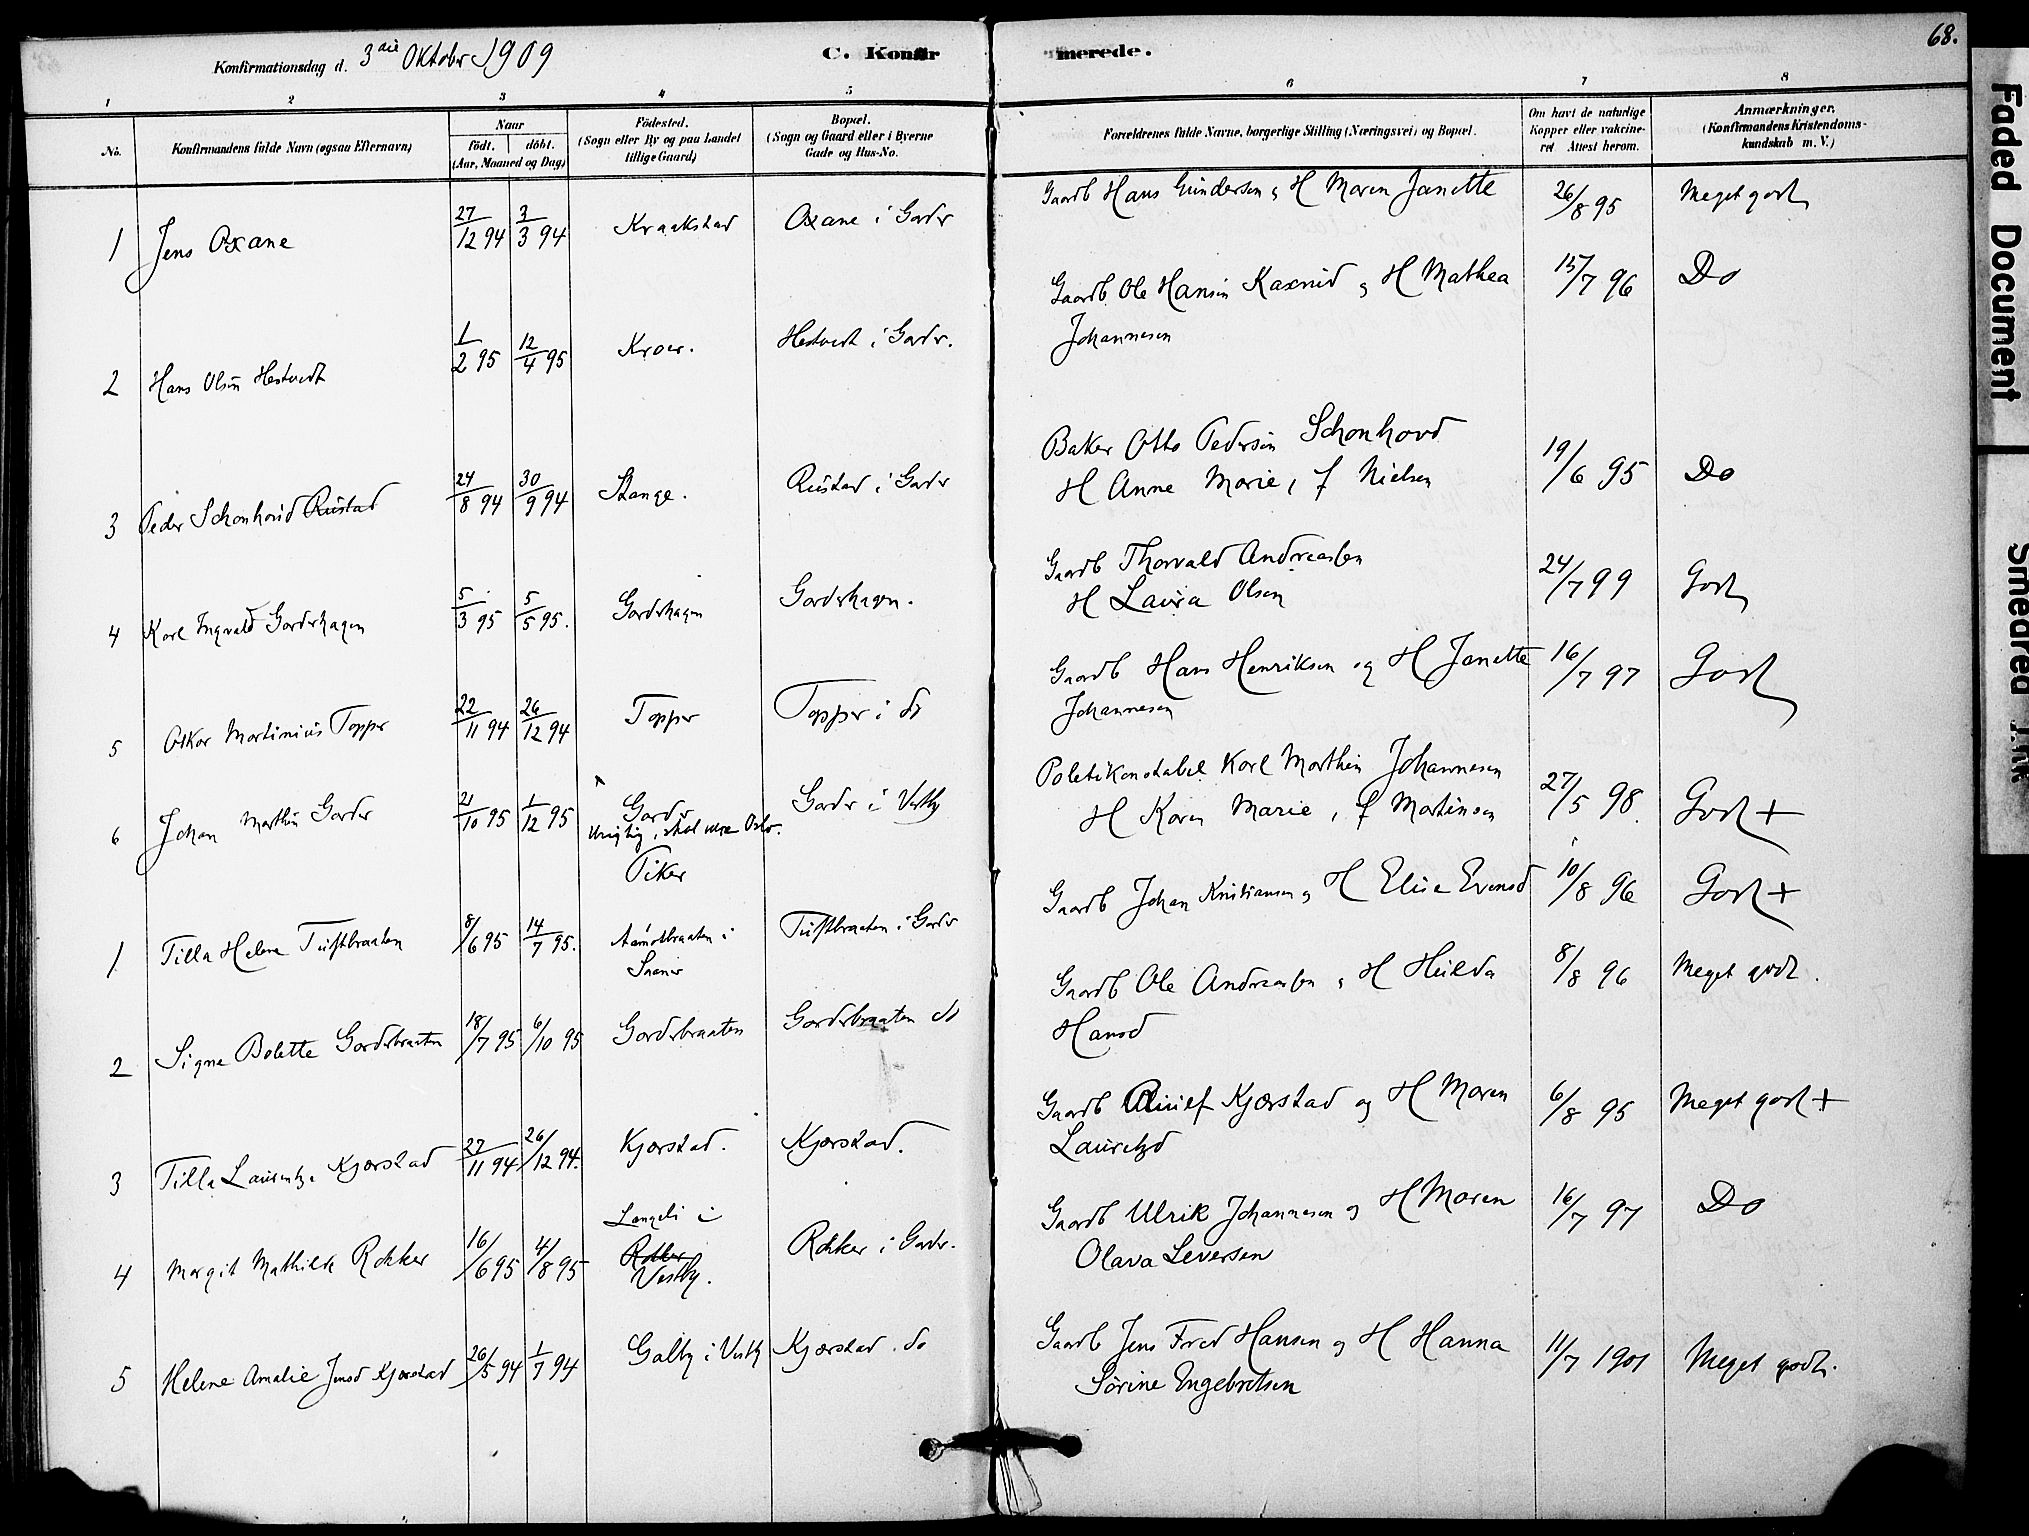 68.
Konfirmationsdag d. 3die Oktober 1909
C. Konfir merede.
1 2 3 4 5 6 7 8
No. Konfirmandens fulde Navn (ogsaa Efternavn) Naar født. döbt. (Aar, Maaned og Dag) Födested. (Sogn eller By og paa Landet tillige Gaard) Bopæl. (Sogn og Gaard eller i Byerne Gade og Hus-No. Forældrenes fulde Navne, borgerlige Stilling (Næringsvei) og Bopæl. Om havt de naturlige Kopper eller vakcineret Attest herom. Anmærkninger. (Konfirmandens Kristendomskundskab m. V.)
1 Jens Oxane 27/12 94 3/3 94 Kraakstad Oxane i Garder Gaardb Hans Gundersen og H Maren Janette 26/8 95 Meget godt
2 Hans Olsen Hestvedt 1/2 95 12/4 95 Kroer. Hestvedt i Garder. Gaardb Ole Hansen og H Mathea 15/7 96 Do
Johannesen
3 Peder Schonhovd Rustad 24/8 94 30/9 94 Stange. Rustad i Garder Baker Otto Pedersen Schonhovd 19/6 95 Do
H Anne Marie, f Nielsen
4 Karl Ingvald Garderhagen 5/3 95 5/5 95. Garderhagen Garderhagen. Gaardb Thorvald Andreassen 24/7 99 Godt
H Laura Olsen
5 Oskar Martinius Topper 22/11 94 26/12 94 Topper Topper i do Gaardb Hans Henriksen og H Janette 16/7 97 Godt
Johannesen
6 Johan Marthin Garder 21/10 95 1/12 95 Garder Garder i Vestby Politikonstabel Karl Marthin Johannesen 27/5 98. Godt +
Urigtig, skal være Oslo. H Karen Marie, f Martinsen
Piker
1 Tilla Helene Tuftbraaten 8/6 95 14/7 95. i Saaner Tuftbraaten i Garder Gaardb Johan Kristiansen og H Elise Evensd 10/8 96 Godt +
2 Signe Bolette Garderbraaten 18/7 95 6/10 95 Garderbraaten Garderbraaten do Gaardb Ole Andreassen og H Hulda 8/8 96 Meget godt.
Hansd
3 Tilla Laurentze Kjærstad 27/11 94 26/12 94. Kjærstad. Kjærstad. Gaardb Kjærstad og H Maren 6/8 95 Meget godt +
Lauritzd
4 Margit Mathilde Rokker 16/6 95 4/8 95 Langeli i Vestby. Rokker i Garder. Gaardb Ulrik Johannesen og H Maren 16/7 97 Do
Olava Seversen
5 Helene Amalie Jensd Kjærstad 26/5 94 1/7 94 Galby i Vestby Kjærstad do Gaardb Jens Fred Hansen og H Hanna 11/7 1901 Meget godt.
Sørine Engebretsen
Faded Document
Smeared Ink